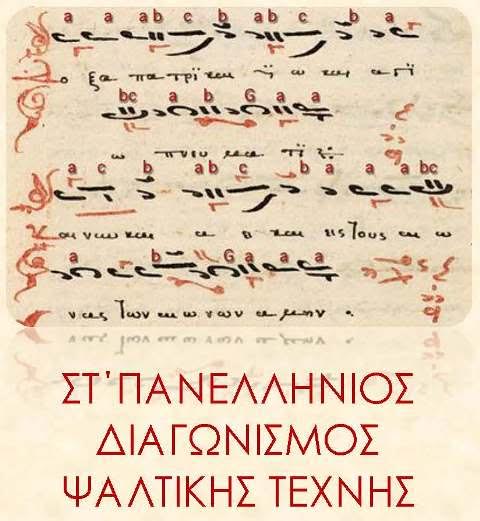 a a ab c b ab c b a
ο ξα πα τρϊ και ϋ ω και α γϊ
bc a b G a a
ω μα τϊ
a c b ab c b a a a bc
αι νω και α και εις τους αι ω
a b G a a a
νας των αι ω νων α μην .
ΣΤ΄ΠΑΝΕΛΛΗΝΙΟΣ
ΔΙΑΓΩΝΙΣΜΟΣ
ΨΑΛΤΙΚΗΣ ΤΕΧΝΗΣ